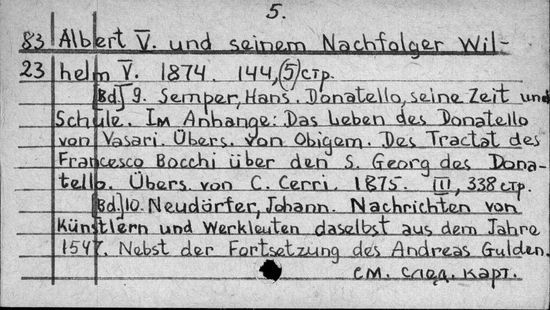 5.
83 Albert V. und seinem Nachfolger Wil-
23 helm V. 1874. 144, (5) стр.
[Bd.] 9. Semper, Hans. Donatello, seine Zeit und
Schule. Im Anhange: Das Leben des Donatello
von Vasari. Übers. von Obigem. Des Tractat des
Francesco Bocchi über den S. Georg des Dona-
tello. Übers. von C. Cerri. 1875. III, 338 стр.
[Bd.] 10. Neudörfer, Johann. Nachrichten von
Künstlern und Werkleuten daselbst aus dem Jahre
1547. Nebst der Fortsetzung des Andreas Gulden.
см. след. карт.